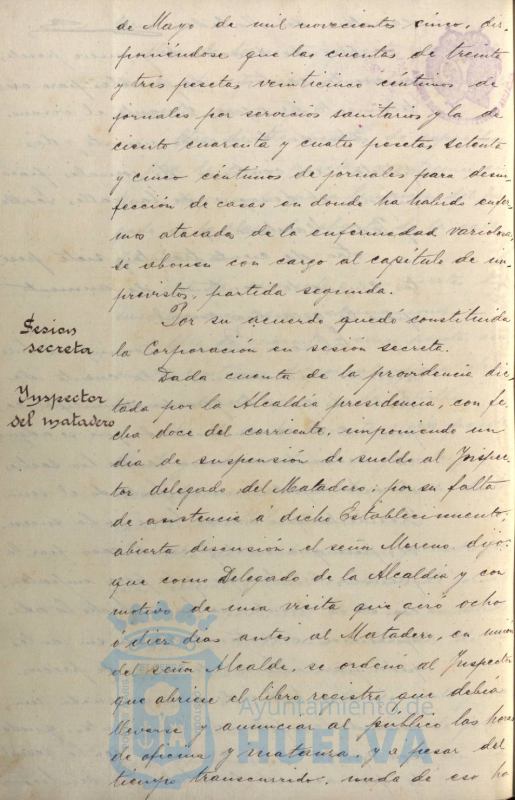 de Mayo de mil novecientos cinco, dis-
poniéndose que las cuentas de treinta
y tres pesetas veinticinco céntimos de
jornales por servicios sanitarios y la de
ciento cuarenta y cuatro pesetas setenta
y cinco céntimos de jornales para desin-
fección de casas en donde ha habido enfer-
mos atacados de la enfermedad variolosa,
se abonen con cargo al capítulo de im-
previstos, partida segunda.
Sesion
secreta
Por su acuerdo quedó constituida
la Corporación en sesión secreta.
Ynspector
del matadero
Dada cuenta de la providencia dic-
tada por la Alcaldía presidencia, con fe-
cha doce del corriente, imponiendo un
dia de suspensión de sueldo al Ynspec-
tor delegado del Matadero, por su falta
de asistencia á dicho Establecimiento,
abierta discusión, el señor Moreno dijo:
que como Delegado de la Alcaldía y con
motivo de una visita que giró ocho
ó diez dias antes al Matadero, en unión
del señor Alcalde, se ordenó al Ynspector
que abriese el libro registro que debía
llevarse y anunciar al público las horas
de oficina y matanza, y a pesar del
tiempo transcurrido, nada de eso ha
Ayuntamiento de
HUELVA